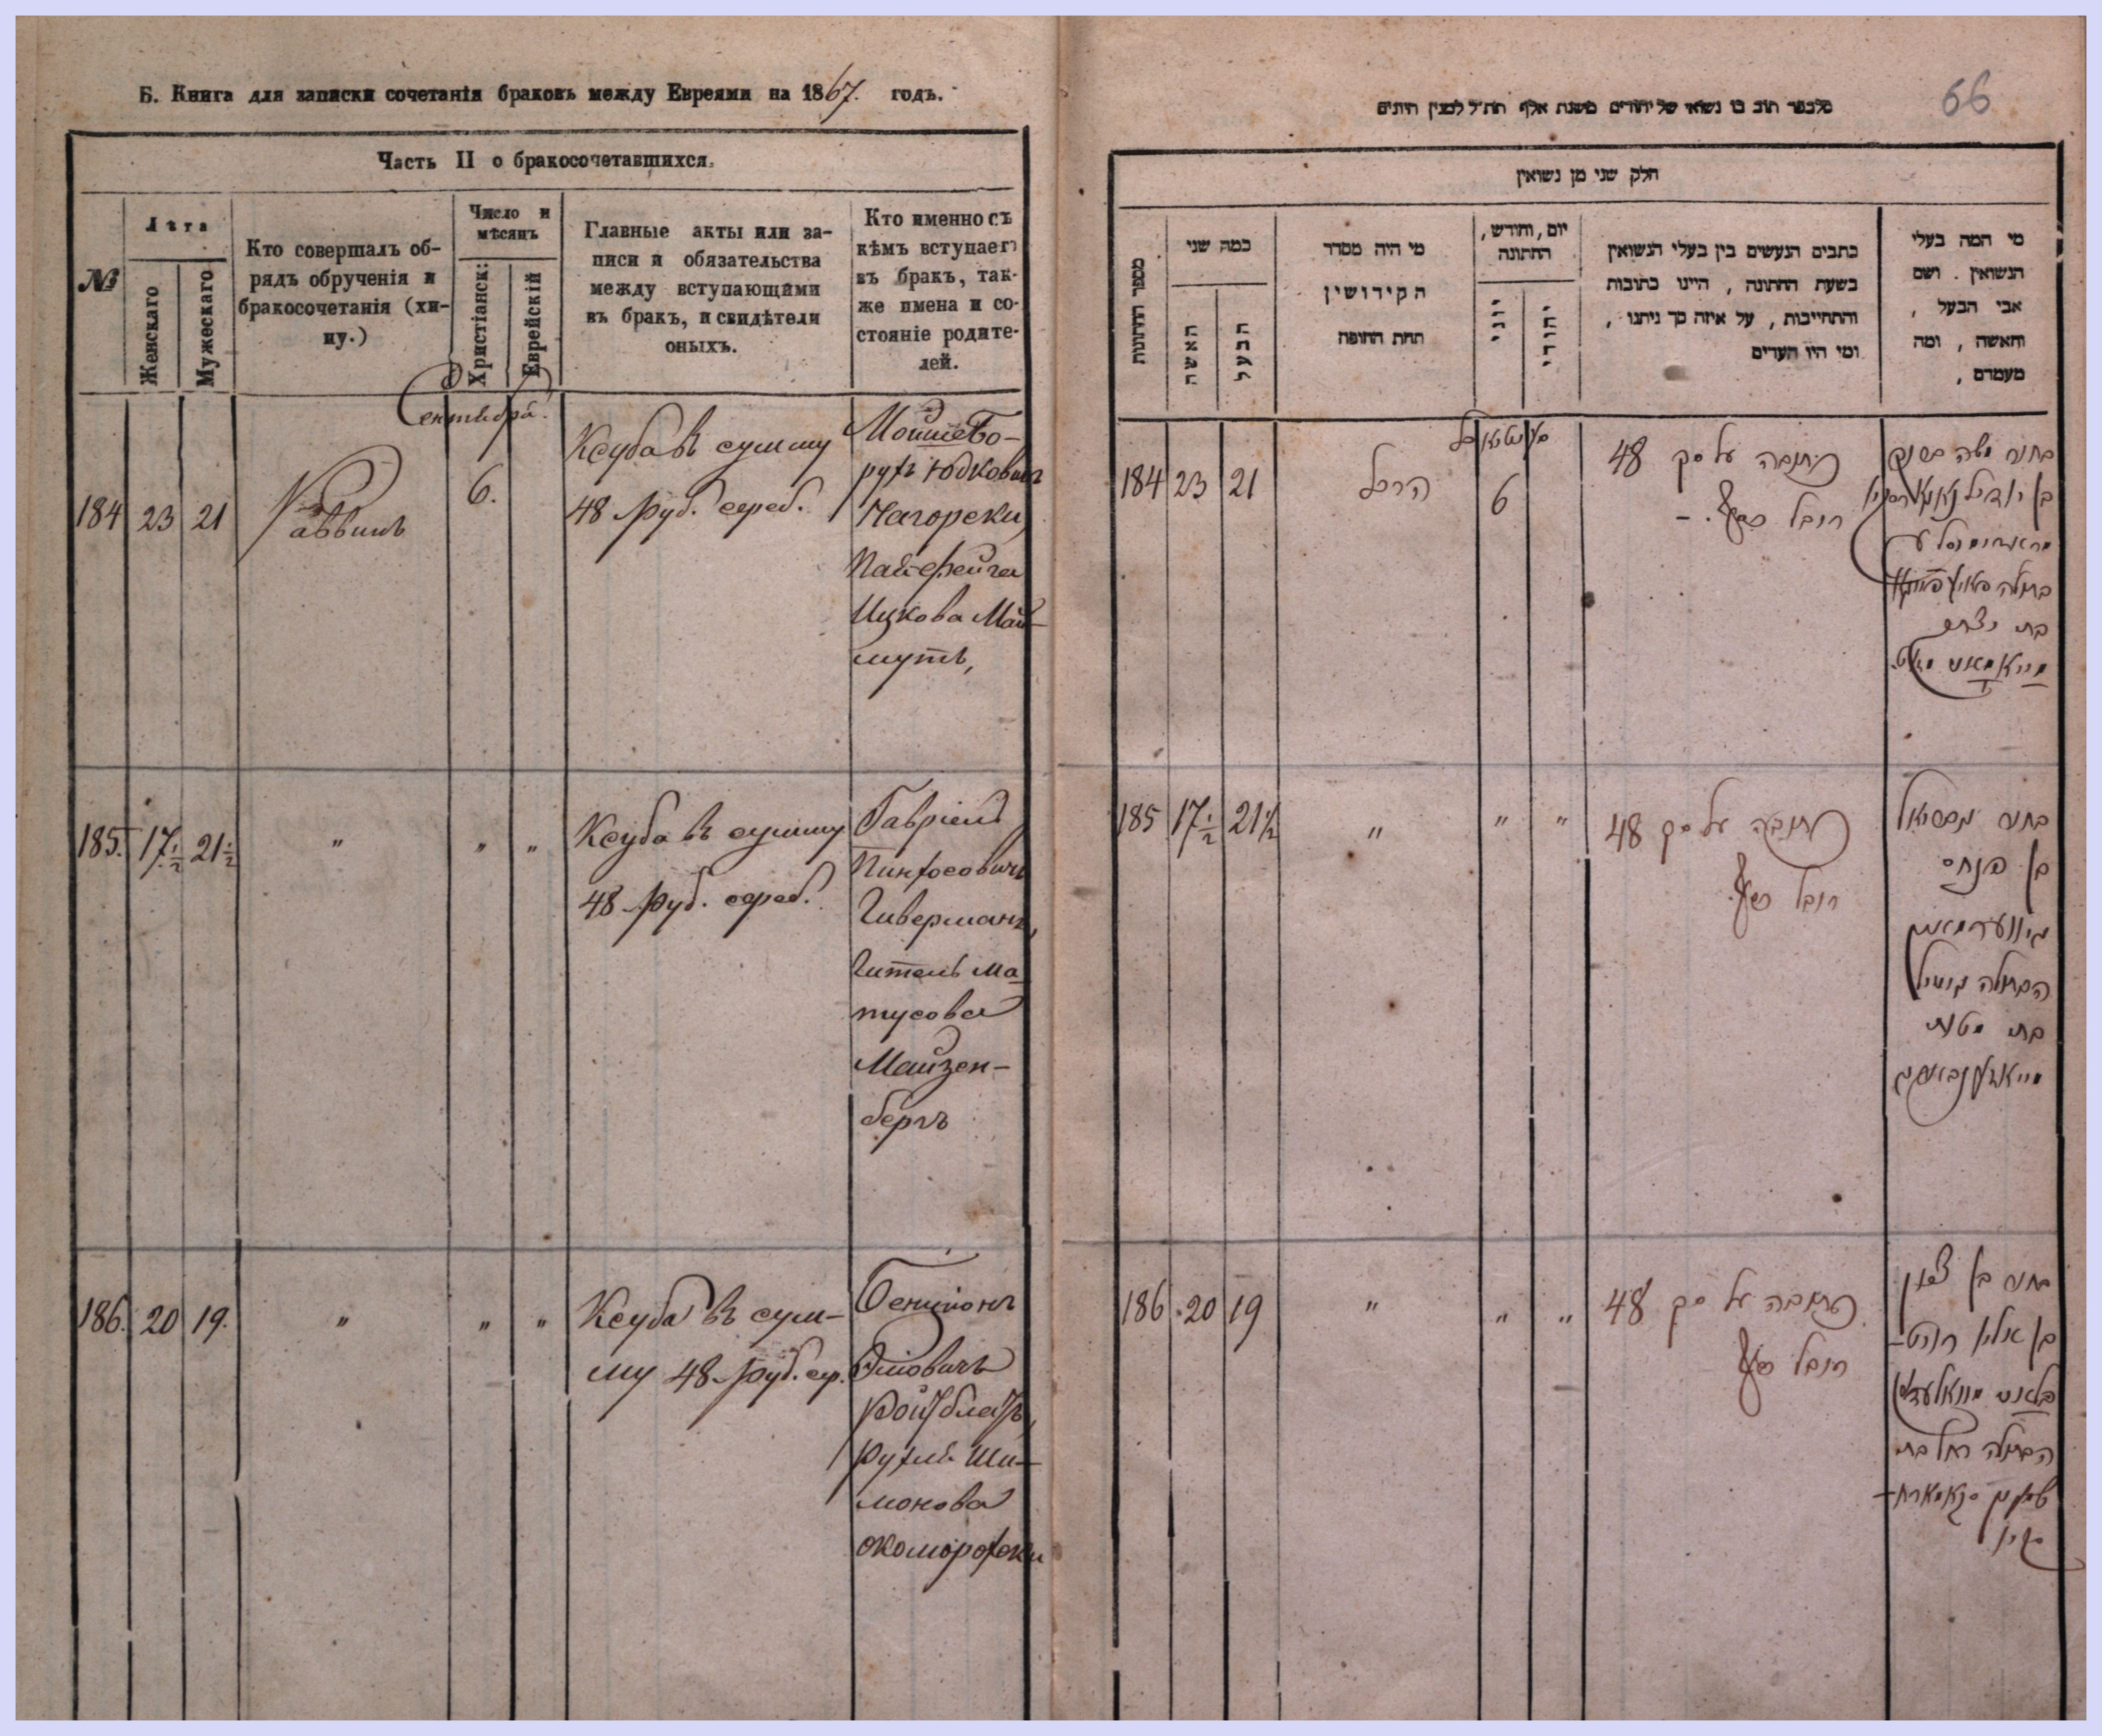 Б. Книга для записки сочетанія браковъ между Евреями на 1867. годъ.
Часть II о бракосочетавшихся.
№
Лѣта
Женскаго
Мужескаго
Кто совершалъ об-
рядъ обрученія и
бракосочетанія (хи-
пу.)
Число и
мѣсяцъ
Христіанск:
Еврейскій
Главные акты или за-
писи и обязательства
между вступающими
въ бракъ, и свидѣтели
оныхъ.
Кто именно съ
кѣмъ вступаетъ
въ бракъ, так-
же имена и со-
стояніе родите-
лей.
Сентября.
184 23 21
Раввинъ
6.
Ксуба въ сумму
48 руб. сереб.
Мойше Бо-
рухъ Юдковичъ
Нагорски,
Пая-Фейга
Ицкова Май-
мутъ,
185. 17½ 21½ " " "
Ксуба въ сумму
48 руб. сереб.
Гавріелъ
Пинхосовичъ
Гиверманъ,
Гитель Ма-
тусова
Майзен-
бергъ
186. 20 19. " " "
Ксуба въ сум-
му 48 руб. ср.
Бенціонъ
Эліовичъ
Ройтблатъ,
Рухль Ши-
монова
Скоморофски
66
חלק שני מן נשואין
מספר החתונות
כמה שני
האשה
הבעל
מי היה מסדר
הקידושין
תחת החופה
יום, וחודש,
החתונה
יוני
יהודי
כתבים הנעשים בין בעלי הנשואין
בשעת החתונה, היינו כתובות
והתחייבות, על איזה סך ניתנו,
ומי היו העדים
מי המה בעלי
הנשואין. ושם
אבי הבעל,
והאשה, ומה
מעמדם,
184 23 21
הרב
6
כתובה על סך 48
רובל כסף. –
בתולה
בת יצחק
185 17½ 21½ " " "
כתובה על סך 48
רובל כסף
בחור גבריאל
בן פנחס
גיווערמאן
הבתולה גיטל
בת מטות
מייזענבערג
186 20 19 " " "
כתובה על סך 48
רובל כסף
בחור בן ציון
בן אליו רויט-
הבתולה רחל בת
שמעון סקאמארא-